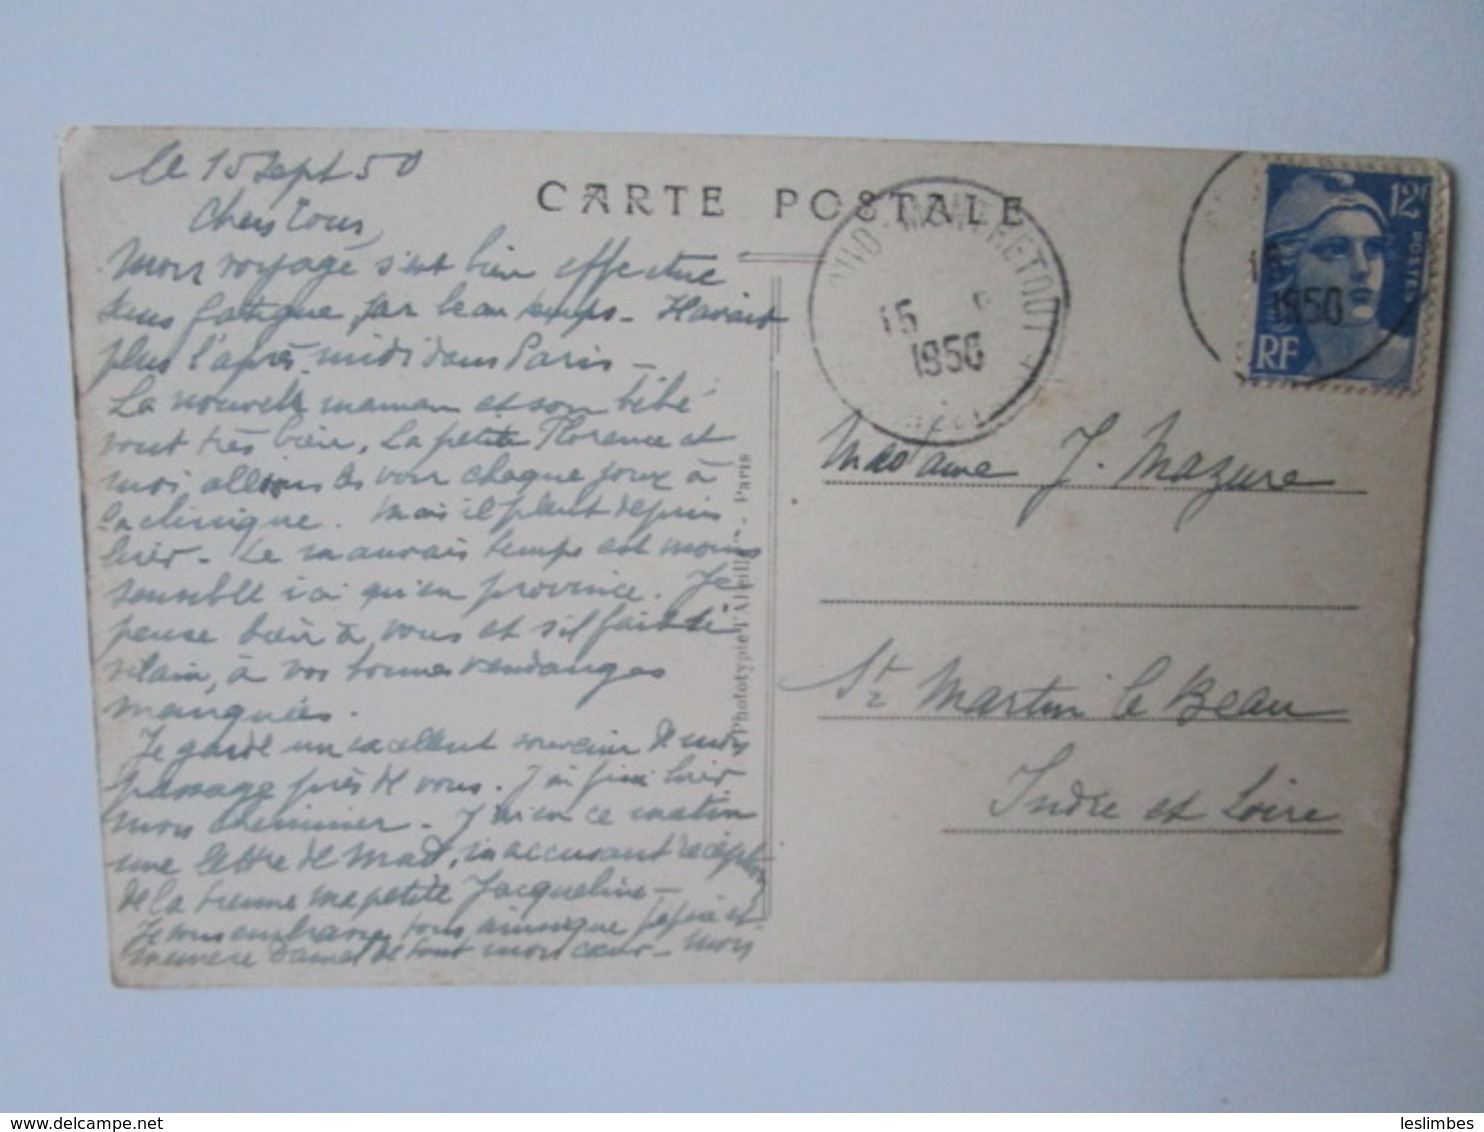 le 15 Sept 50
Chers tous,
Mon voyage s'est bien effectué
sans fatigue par beau temps -
plus l'après-midi dans Paris -
La nouvelle maman et son bébé
vont très bien, La petite Florence et
moi allions les voir chaque jour à
la clinique. Mais il pleut depuis
hier - Le mauvais temps est moins
sensible ici qu'en province. Je
pense bien à vous et s'il fait
vilain, à vos bonnes vendanges
manquées.
Je garde un excellent souvenir de mon
passage près de vous. J'ai fini hier
mon chemisier - J'ai eu ce matin
une lettre de Mad, m'accusant réception
de la tienne ma petite Jacqueline -
Je vous embrasse tous ainsi que et
de tout mon cœur -
CARTE POSTALE
15
1950
1950
12F
POSTES
RF
Madame J. Mazure
St Martin le Beau
Indre et Loire
Phototypie - Paris
leslimbes